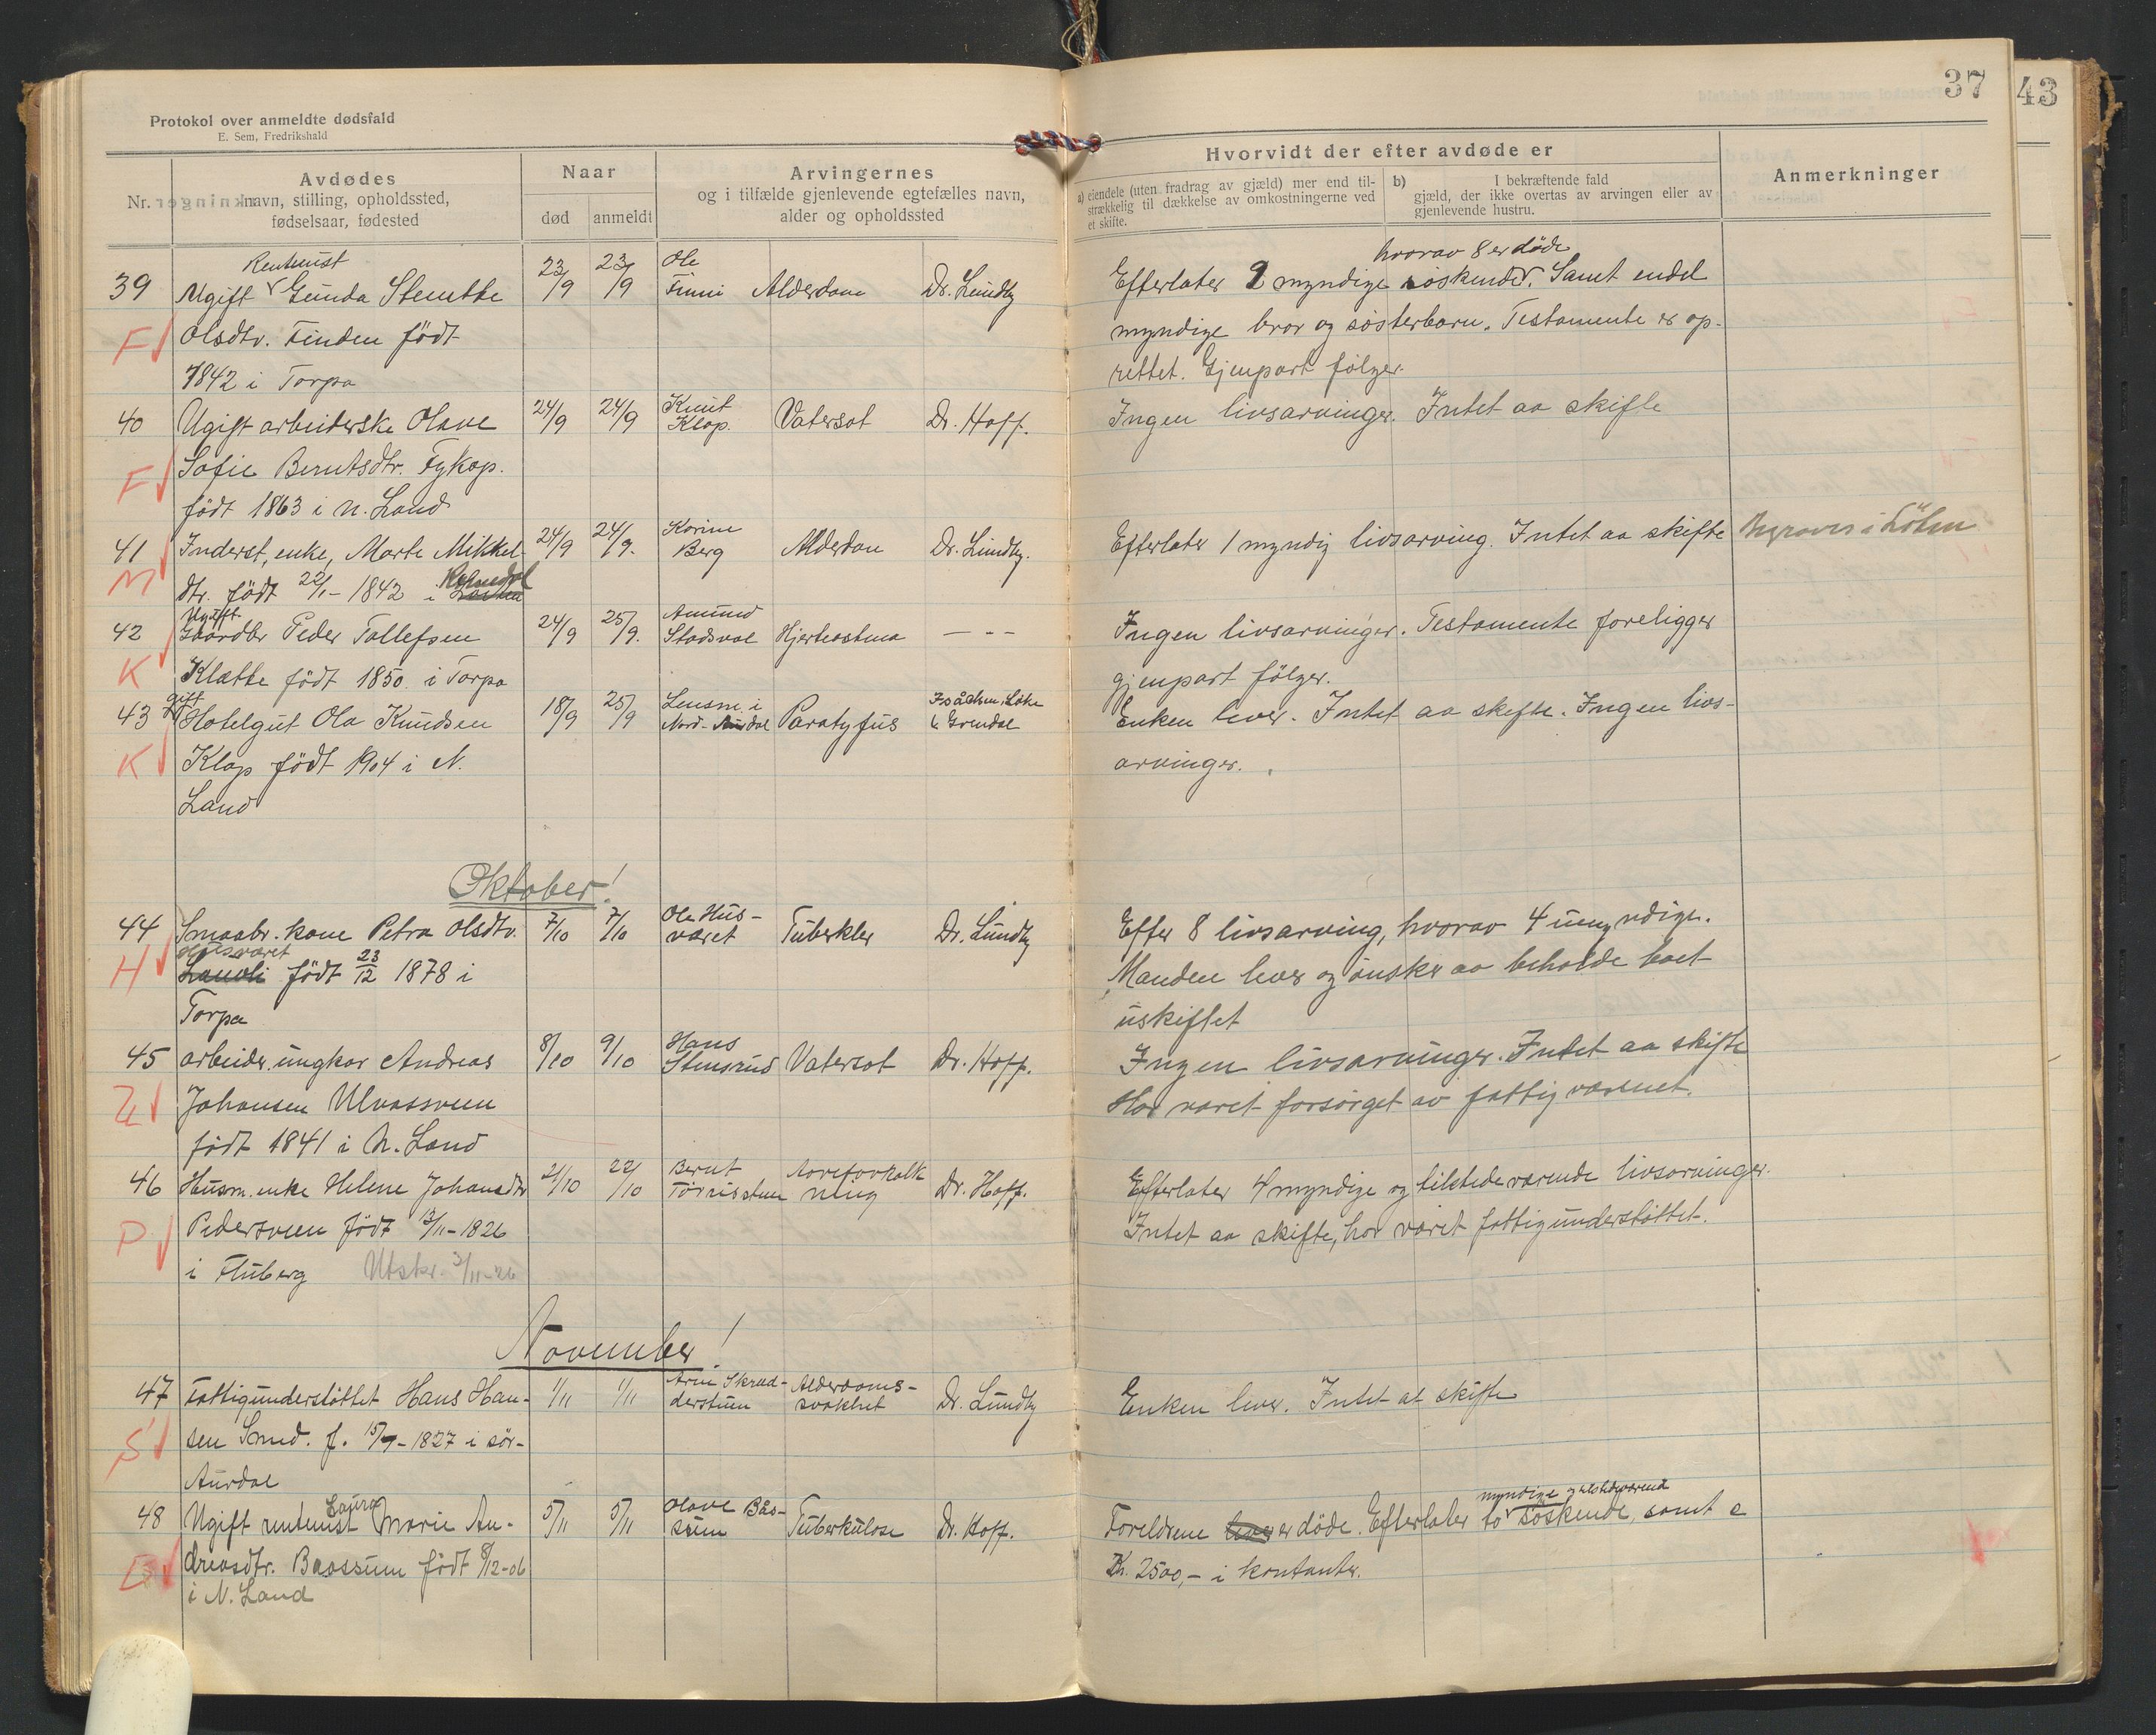 37
43
Protokol over anmeldte dødsfald
E. Sem, Fredrikshald
Nr.
Avdødes
navn, stilling, opholdssted,
fødselsaar, fødested
Naar
død
anmeldt
Arvingernes
og i tilfælde gjenlevende egtefælles navn,
alder og opholdssted
Hvorvidt der efter avdøde er
a) eiendele (uten fradrag av gjæld) mer end til-
strækkelig til dækkelse av omkostningerne ved
et skifte.
b) I bekræftende fald
gjæld, der ikke overtas av arvingen eller av
gjenlevende hustru.
Anmerkninger
Rentenist
39 Ugift Gunda Stentte 23/9 23/9 Ole Finni Alderdom Dr. Lundby
F Olsdtr. Finden född
1842 i Torpa
hvorav 8 er døde
Efterlater 9 myndige söskende. Samt endel
myndige bror og søsterbarn. Testamente er op-
rettet. Gjenpart fölger.
40 Ugift arbeiderske Olave 24/9 24/9 Knut Klop. Vatersot Dr. Hoff.
F Sofie Berntsdtr. Fykop.
född 1863 i N. Land
Ingen livsarvinger. Intet aa skifte
41 Inderst, enke, Marte Mikkel- 24/9 24/9. Karine Berg Alderdom Dr. Lundby.
M dtr. född 22/1-1842 i Romedal
Efterlater 1 myndig livsarving. Intet aa skifte Begraves i Löten
Ugift
42 Gaardbr Peder Tollefsen 24/9 25/9. Amund Stadsvol Hjerteastma — - -
K Klatte född 1850. i Torpa
Ingen livsarvinger. Testamente foreligger
gjenpart fölger.
gift
43 Hotelgut Ola Knudsen 18/9 25/9 Lensm. i Nord-Aurdal Paratyfus
K Klop född 1904 i N.
Land
Enken lever. Intet aa skifte. Ingen livs-
arvinger.
Oktober!
44 Smaabr. kone Petra Olsdtr. 7/10 7/10 Ola Hus-været Tuberkler Dr. Lundby
Husværet
H född 23/12 1878 i
Torpa
Efter 8 livsarving, hvorav 4 umyndige.
Manden lever og ønsker aa beholde boet
uskiftet
45 arbeider. ungkar Andreas 8/10 9/10 Hans Stensrud Vatersot Dr. Hoff.
U Johansen Ulvassveen
född 1841 i N. Land
Ingen livsarvinger. Intet aa skifte
Har været forsørget av fattigvæsenet.
46 Husm. enke Helene Johansdtr 21/10 22/10 Bernt Törrisstuen Aareforkalkning Dr. Hoff.
P Pedersveen född 13/11-1826
i Fluberg Utskr. 3/11-26
Efterlater 4 myndige og tilstedeværende livsarvinger.
Intet aa skifte, har været fattigunderstöttet.
November!
47 Fattigunderstöttet Hans Han- 1/11 1/11 Arne Skrad-derstuen Alderdoms-svakhet Dr. Lundby
S sen Smed. f. 15/7-1827 i sör-
Aurdal
Enken lever. Intet at skifte
Laura
48 Ugift rentenist Marie An- 5/11 5/11 Olave Bås-sum Tuberkulose Dr. Hoff.
B dreasdtr. Baassum född 8/12-06
i N. Land
myndige og tilstedeværend
Foreldrene er döde. Efterlater to söskende, samt a
Kr. 2500,- i kontanter.